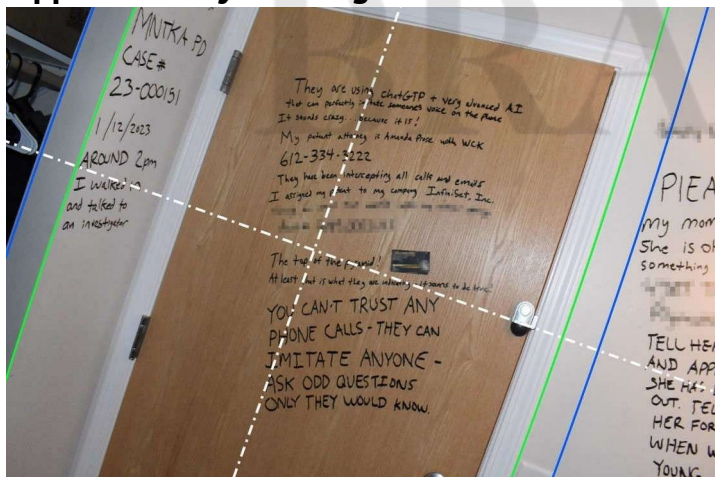 MNTKA PD
CASE#
23-000151
1/12/2023
AROUND 2pm
I walked in
and talked to
an investigator
They are using ChatGTP + very advanced A.I
that can perfectly imitate someones voice on the phone
It sounds crazy... because it is!
My patent attorney is Amanda Prose with WCK
612-334-3222
They have been intercepting all calls and emails
I assigned my patent to my company InfiniSet, Inc.
The top of the pyramid!
At least that is what they are indicating - it seems to be true!
YOU CAN'T TRUST ANY
PHONE CALLS - THEY CAN
IMITATE ANYONE -
ASK ODD QUESTIONS
ONLY THEY WOULD KNOW.
my mom
She is
something
TELL HER
AND
SHE HAS
OUT.
HER FOR
WHEN
YOUNG